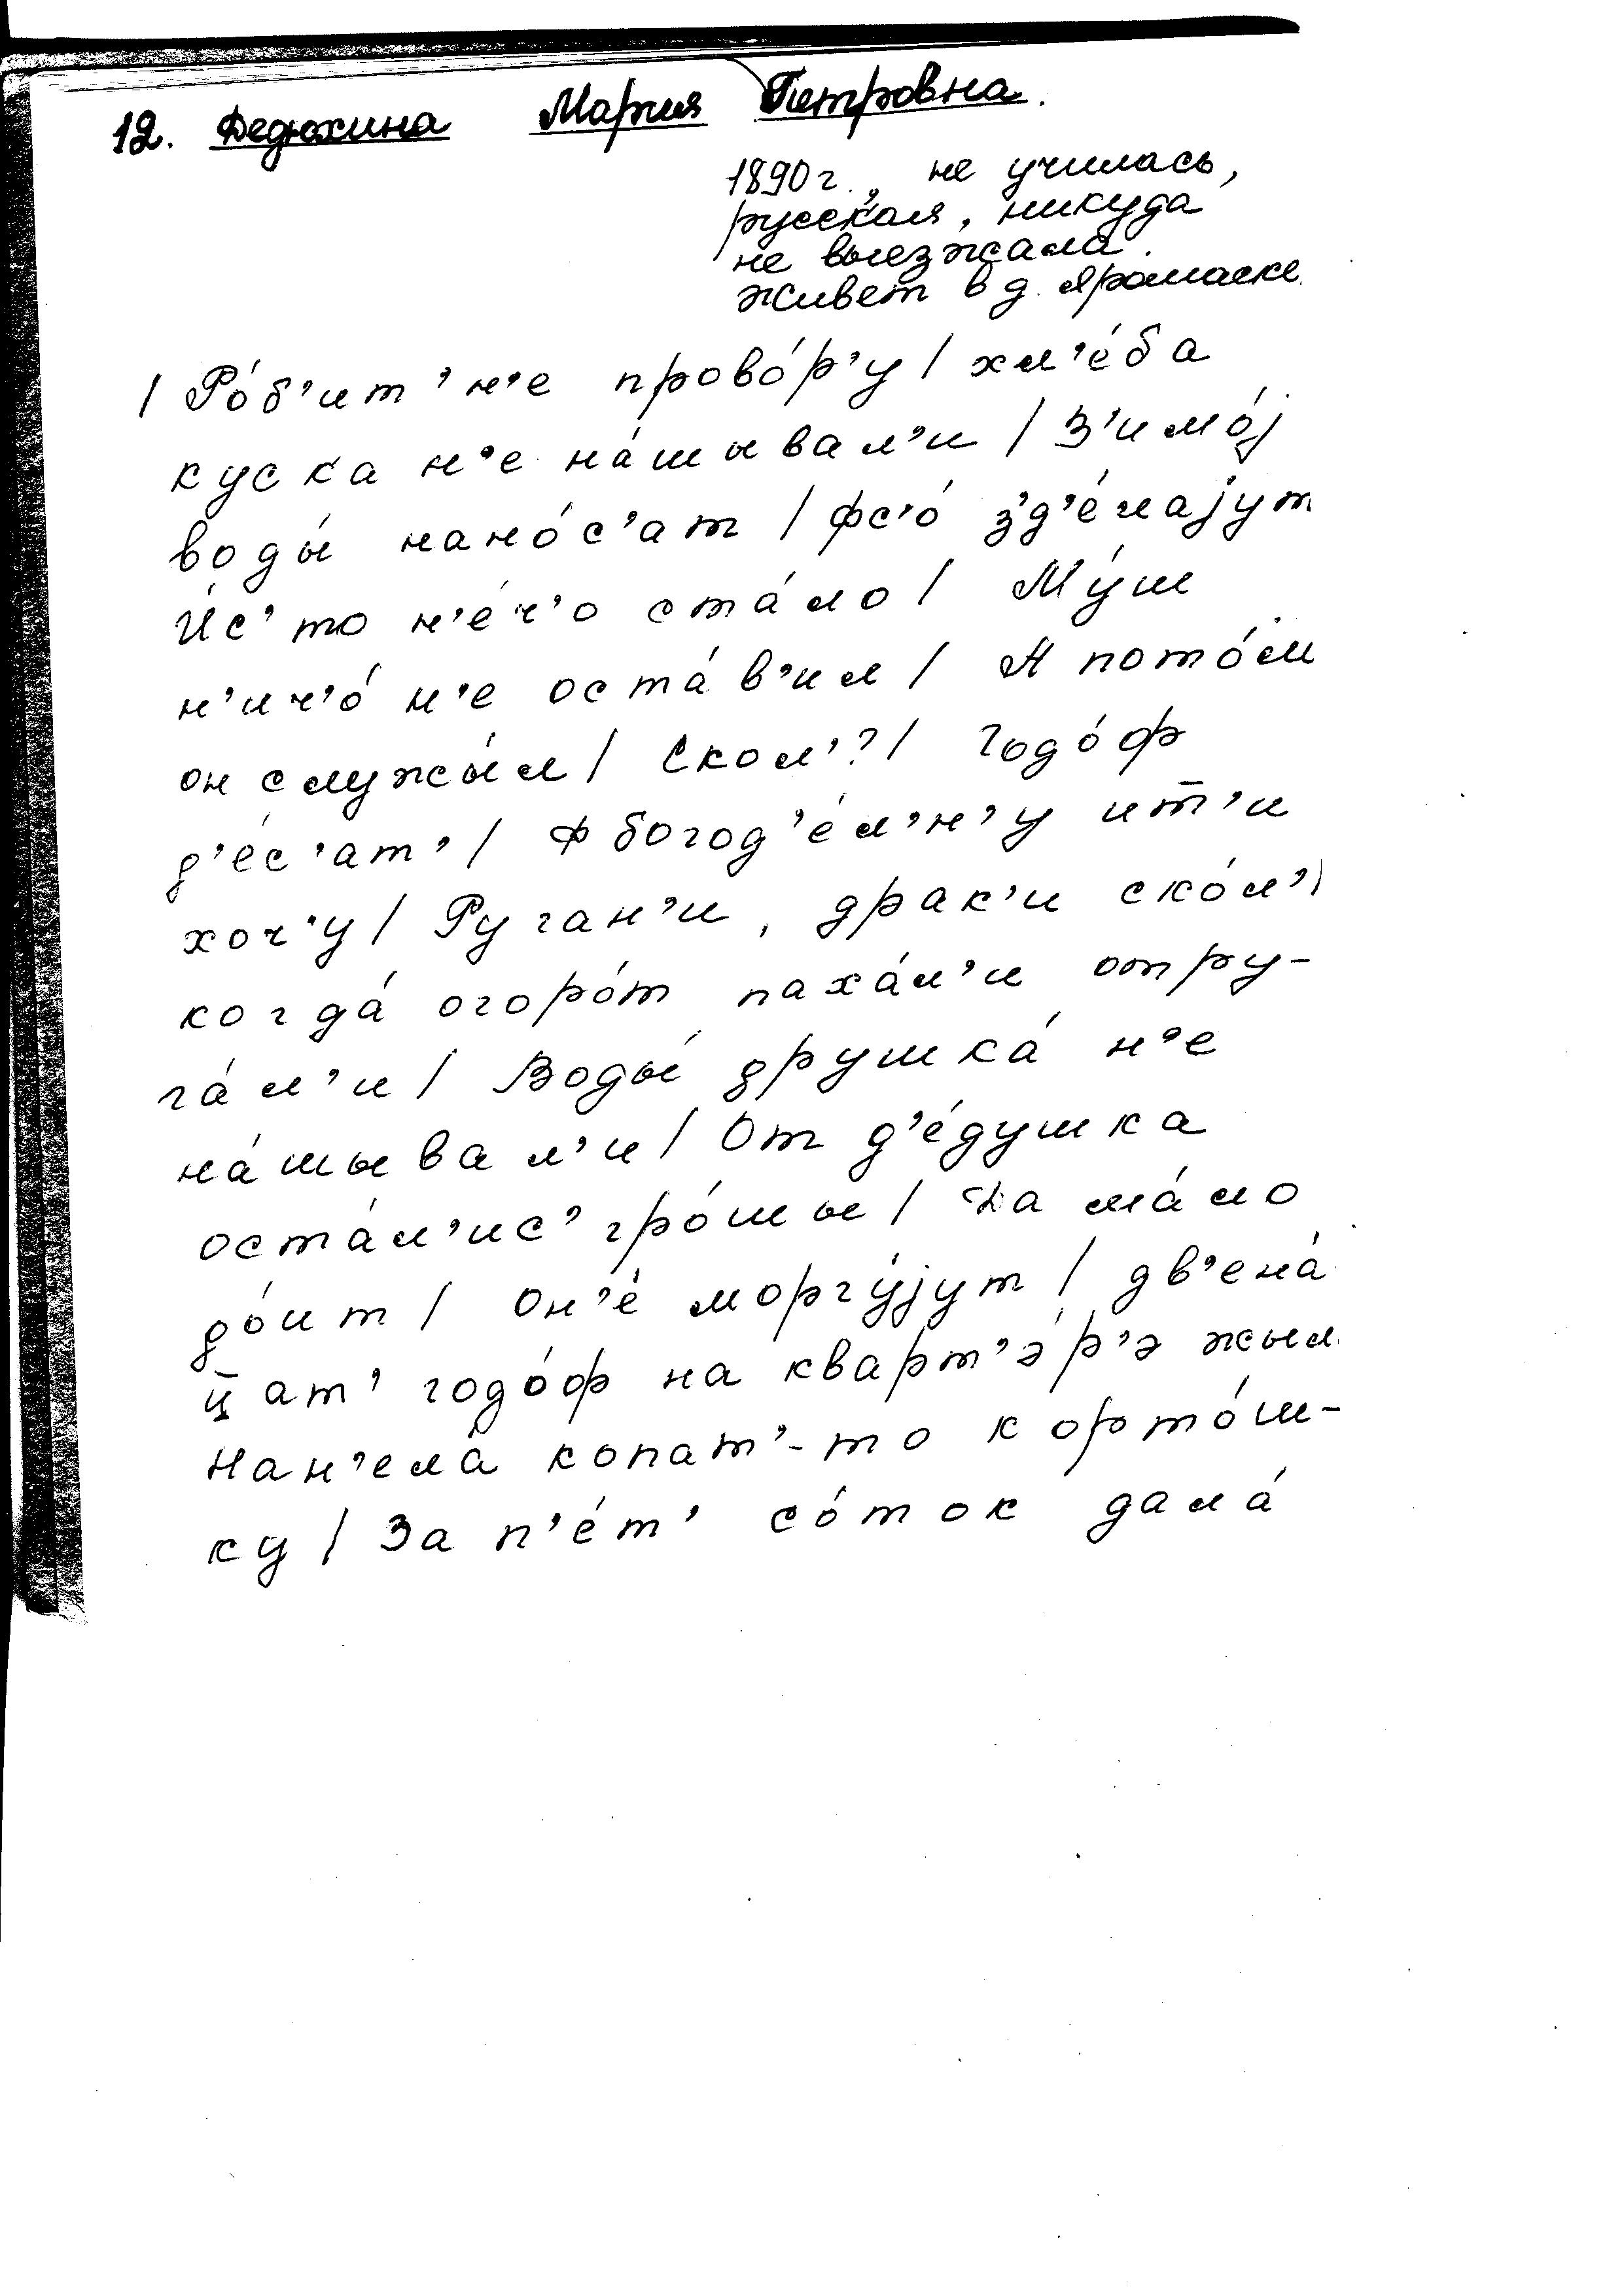 12. Дедюхина Мария Петровна.
1890 г., не училась,
русская, никуда
не выезжала.
живет в д. Яромаске.
/ Ро́б'ит' н'е прово́р'у / хл'е́ба
куска н'е на́шывал'и / З'имо́j
воды́ нано́с'ат / фс'о́ з'д'е́лаjут
И́с'то н'е́ч'о ста́ло / Му́ш
н'ич'о́ н'е оста́в'ил / А пото́м
он служы́л / Скол'? / Годо́ф
д'е́с'ат' / Ф богод'е́л'н'у ит̄'и
хоч'у / Руган'и, драк'и ско́л'/
когда́ огоро́т паха́л'и отру-
га́л'и / Воды́ друшка́ н'е
на́шывал'и / От д'е́душка
оста́л'ис' гро́шы / Да ма́ло
до́ит / Он'е́ моргу́jут / дв'ена́
ц̄ат' годо́ф на кварт'э́р'э жыл.
Нан'ела́ копат'-то корто́ш-
ку / За п'е́т' со́ток дала́